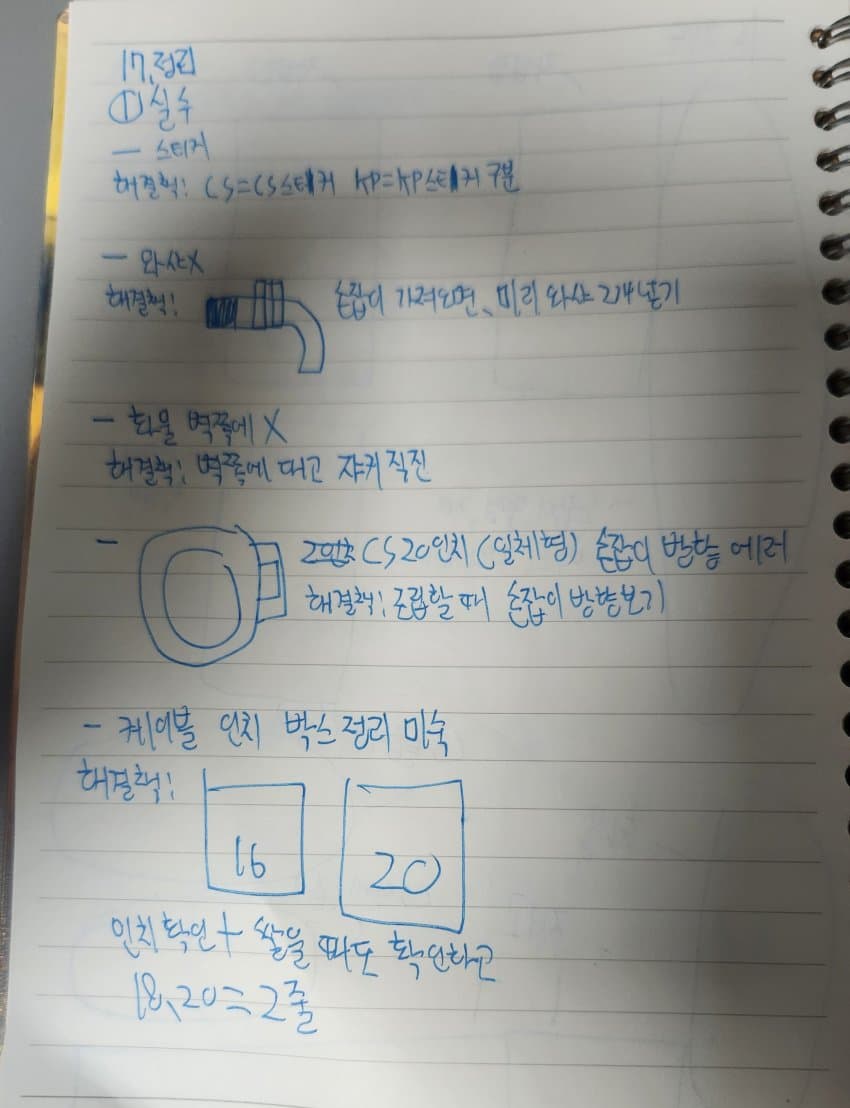 17. 정리
① 실수
— 스티커
해결책! CS=CS스티커 KP=KP스티커 구분
— 와샤X
해결책! 손잡이 가져오면, 미리 와샤 2개 넣기
— 화물 벽쪽에 X
해결책! 벽쪽에 대고 쟈키 직진
— CS 20인치 (일체형) 손잡이 방향 에러
해결책! 조립할 때 손잡이 방향보기
— 케이블 인치 박스 정리 미숙
해결책!
16
20
인치확인 + 쌓을 때도 확인하고
18, 20 = 2줄